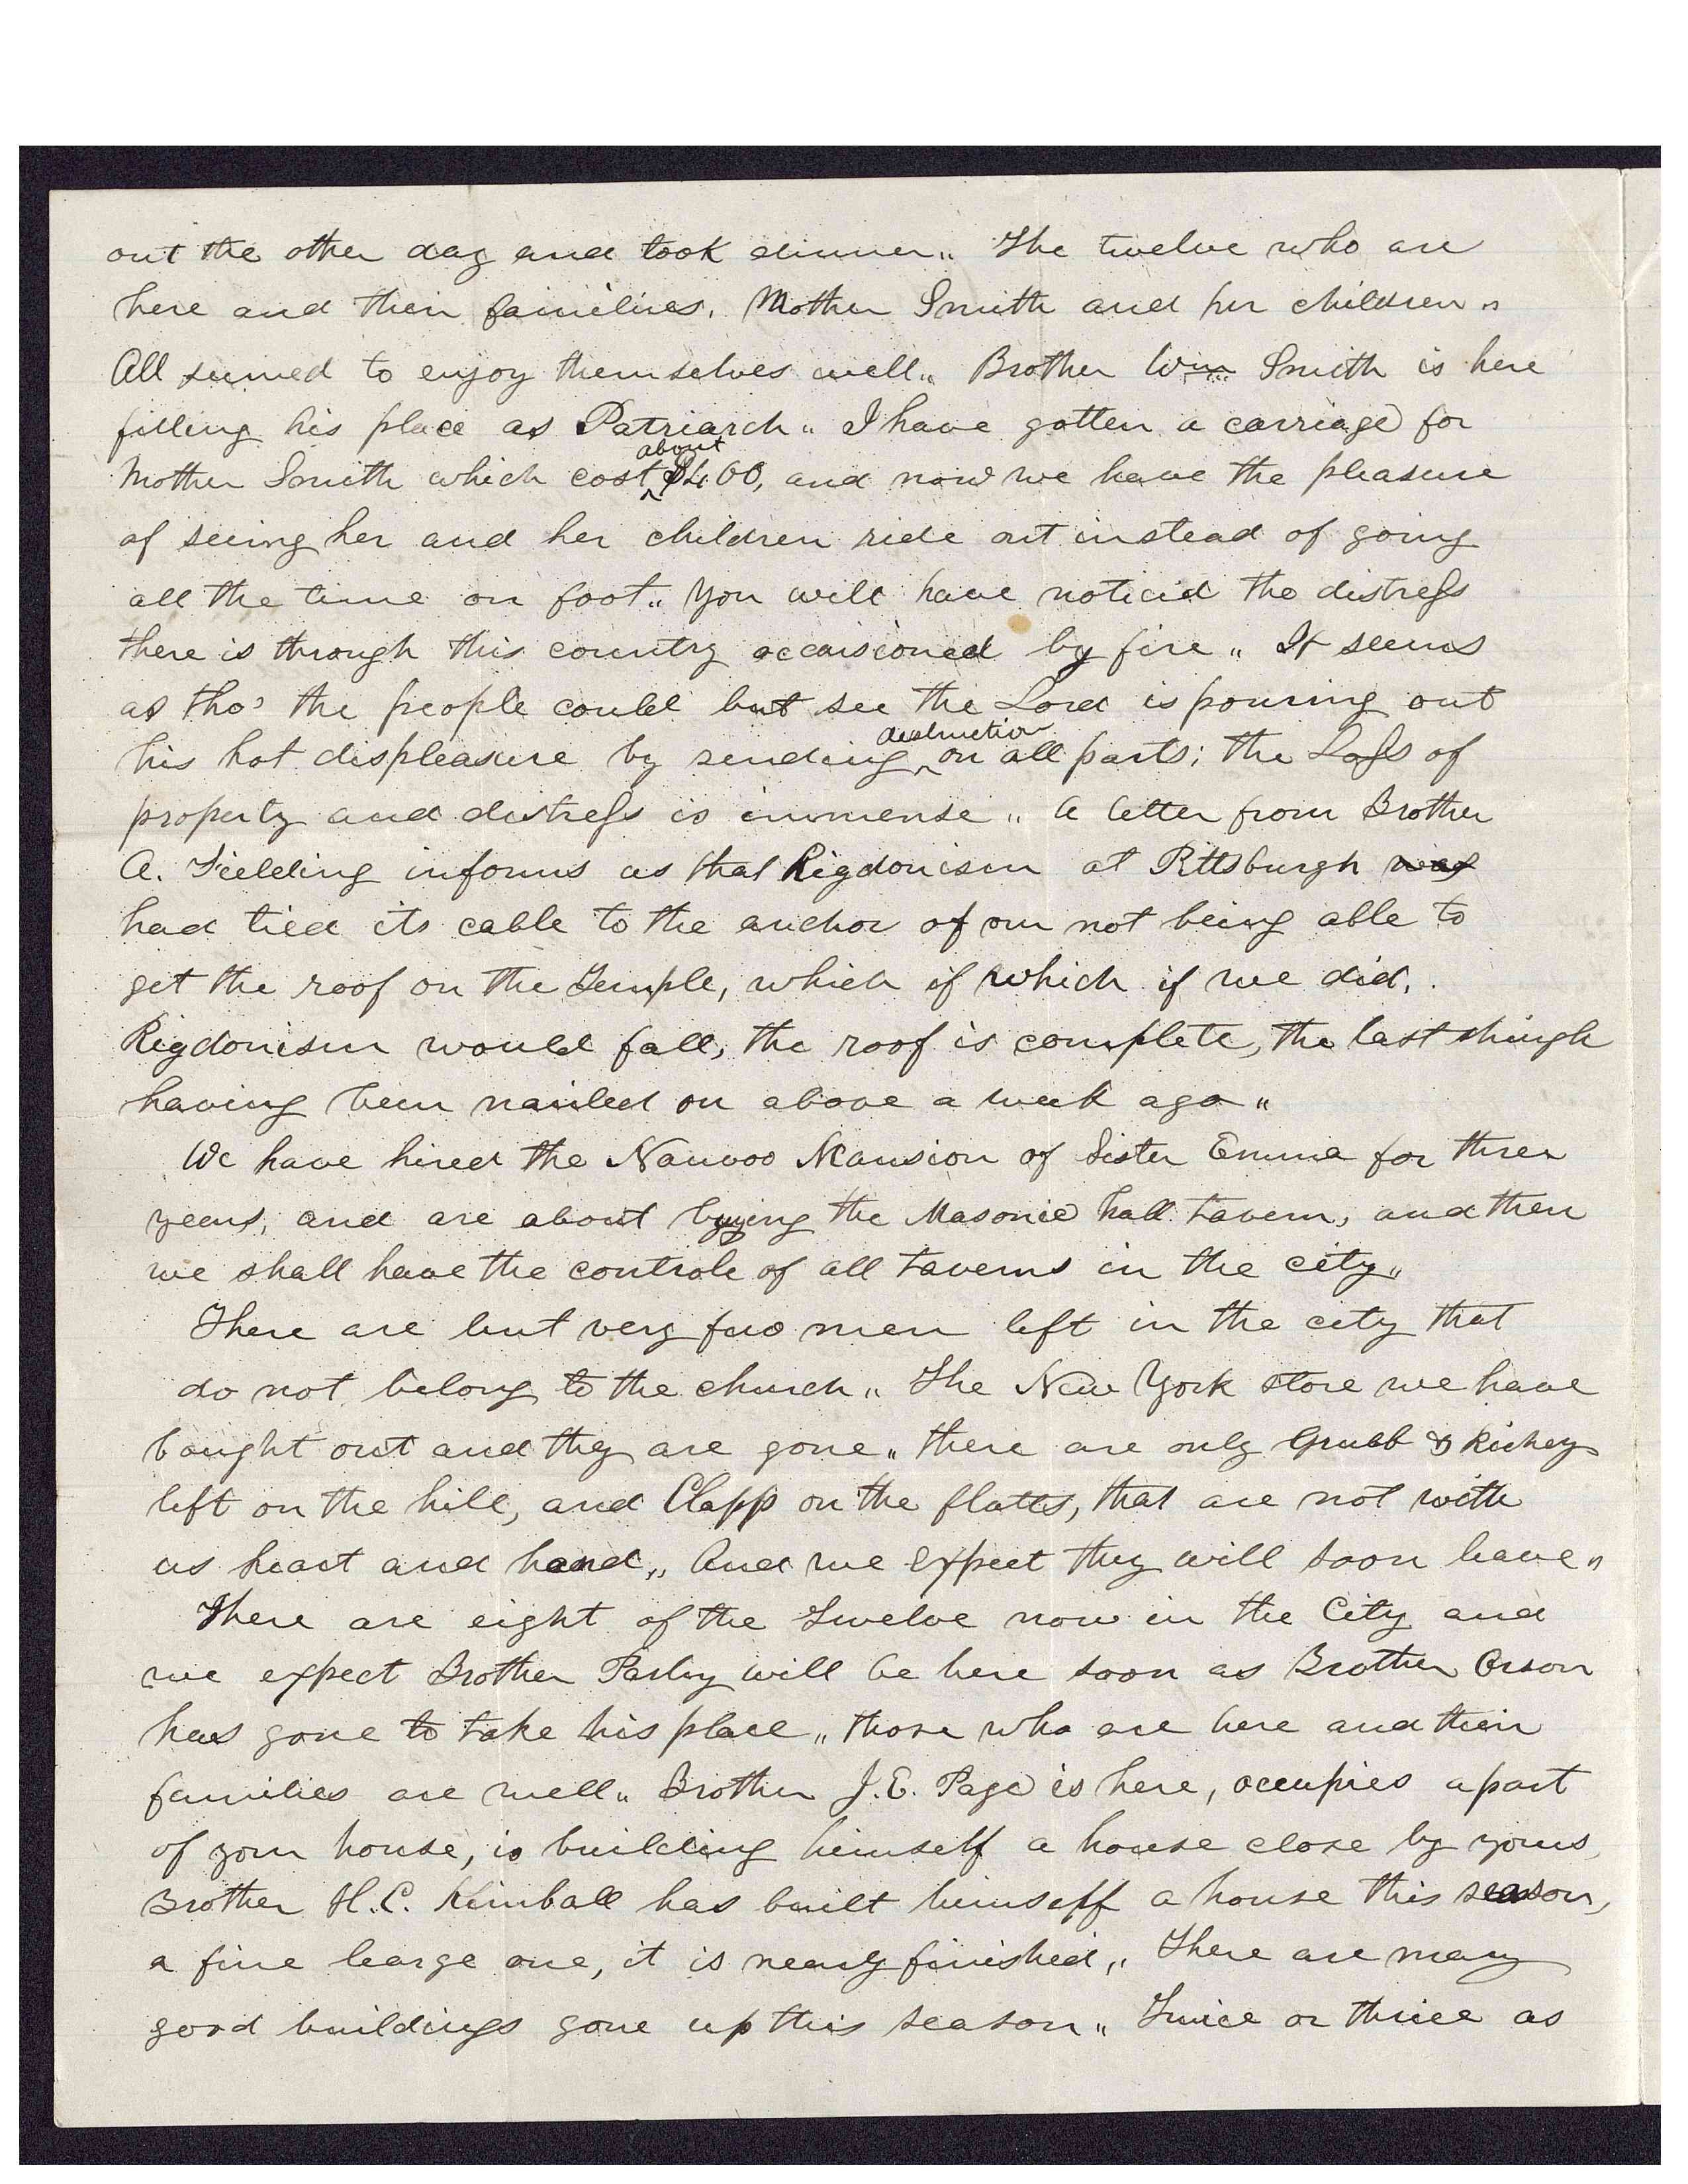 out the other day and took dinner„ The twelve who are
here and their families, Mother Smith and her children„
All seemed to enjoy themselves well„ Brother Wm Smith is here
filling his place as Patriarch„ I have gotten a carriage for
about
Mother Smith which cost ^ $400, and now we have the pleasure
of seeing her and her children ride out instead of going
all the time on foot„ You will have noticed the distress
there is through this country occaisioned by fire„ It seems
as tho' the people could but see the Lord is pouring out
destruction
his hot displeasure by sending ^ on all parts; the Loss of
property and distress is immense„ A letter from Brother
A. Fielding informs us that Rigdonism at Pittsburgh was
had tied its cable to the anchor of our not being able to
get the roof on the Temple, which if which if we did,
Rigdonism would fall, the roof is complete, the last shingle
having been nailed on above a week ago„
We have hired the Nauvoo Mansion of Sister Emma for three
years, and are about buying the Masonic hall tavern, and then
we shall have the controle of all taverns in the city„
There are but very few men left in the city that
do not belong to the church„ The New York store we have
bought out and they are gone„ there are only Grubb & Richey
left on the hill, and Clapp on the flatts, that are not with
us heart and hand„ And we expect they will soon leave„
There are eight of the Twelve now in the City and
we expect Brother Parley will be here soon as Brother Orson
has gone to take his place„ those who are here and their
families are well„ Brother J. E. Page is here, occupies a part
of your house, is building himself a house close by yours,
Brother H. C. Kimball has built himself a house this season,
a fine learge one, it is nearly finished„ There are many
good buildings gone up this season„ Twice or thrice as